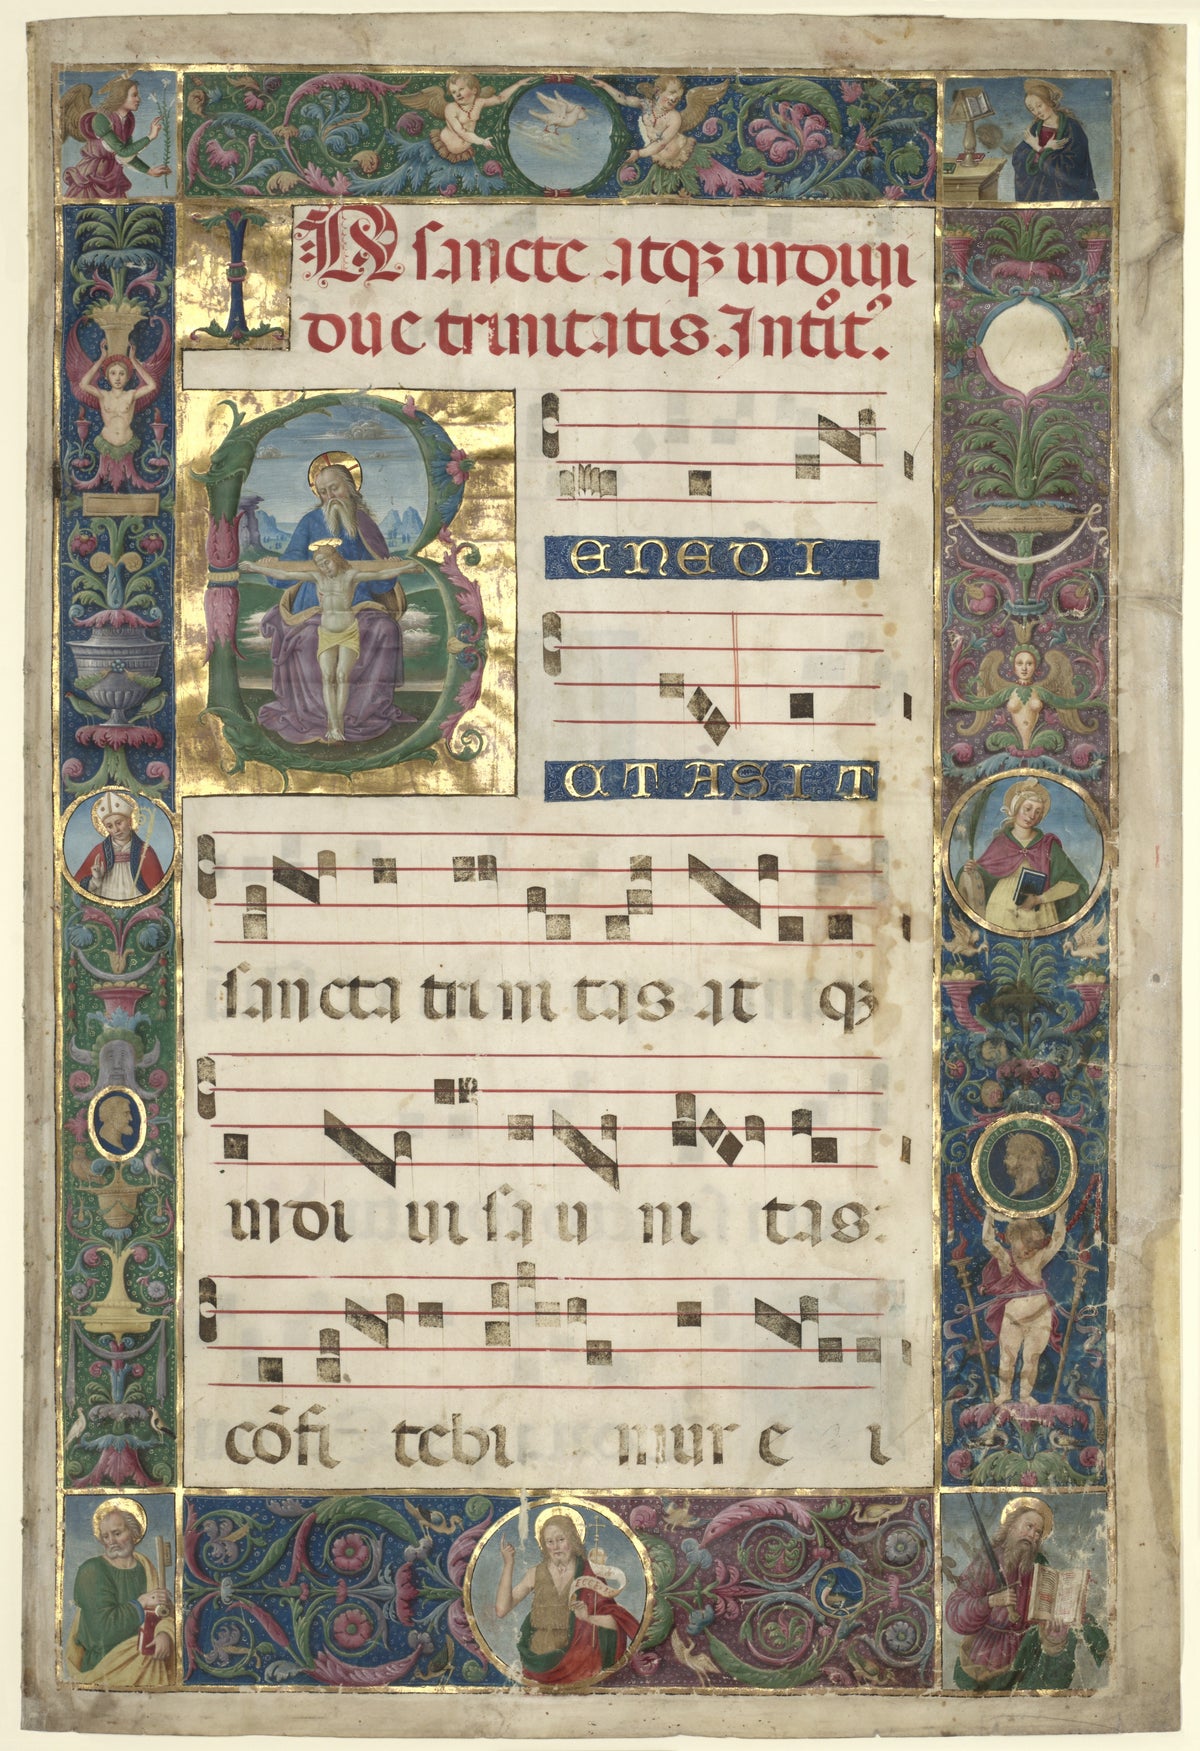 IN sancte atqꝫ indiui
due trinitatis. Introit.
B ENEDI
CTA SIT
sancta trinitas atqꝫ
indiuisa unitas:
cōfitebimur ei